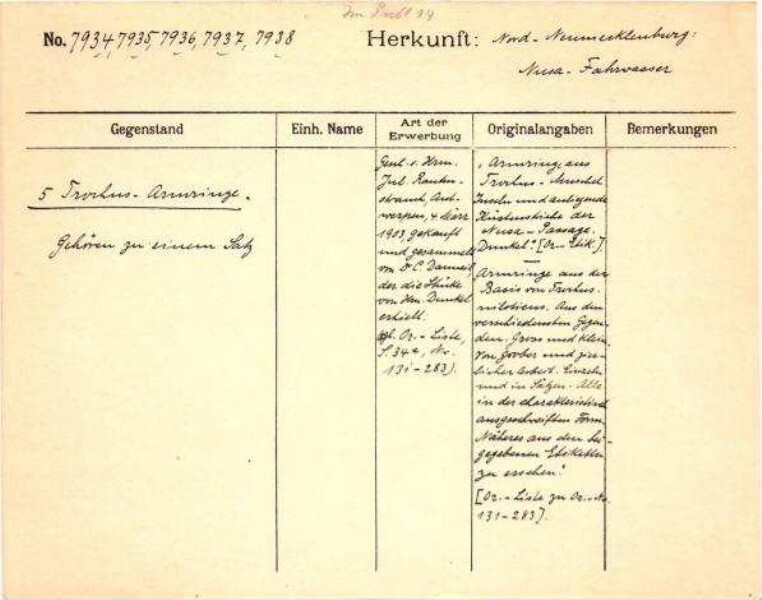 No. 7934, 7935, 7936, 7937, 7938
Herkunft: Nord-Neumecklenburg:
Nusa-Fahrwasser
Gegenstand
Einh. Name
Art der Erwerbung
Originalangaben
Bemerkungen
5 Trochus-Armringe.
Gehören zu einem Satz
Gesch. v. Hrn.
Jul. Rauten-
strauch, Ant-
werpen, 4 März
1903, gekauft
und gesammelt
von Dr C. Danneil,
der die Stücke
von Hrn. Dunkel
erhielt.
vgl. Or.-Liste,
S. 34a, No.
131-283).
"Armringe aus
Trochus-Muschel
Inseln und anliegende
Küstenstriche der
Nusa-Passage.
Dunkel." [Or-Etik.].
"Armringe aus der
Basis von Trochus
niloticus. Aus den
verschiedensten Gegen-
den. Gross und klein
von grober und zier-
licher Arbeit. Einzeln
und in Sätzen. Alle
in der charakteristisch
ausgeschweiften Form
Näheres aus den bei-
gegebenen Etiketten
zu ersehen."
[Or.-Liste zu Or.-No.
131-283].